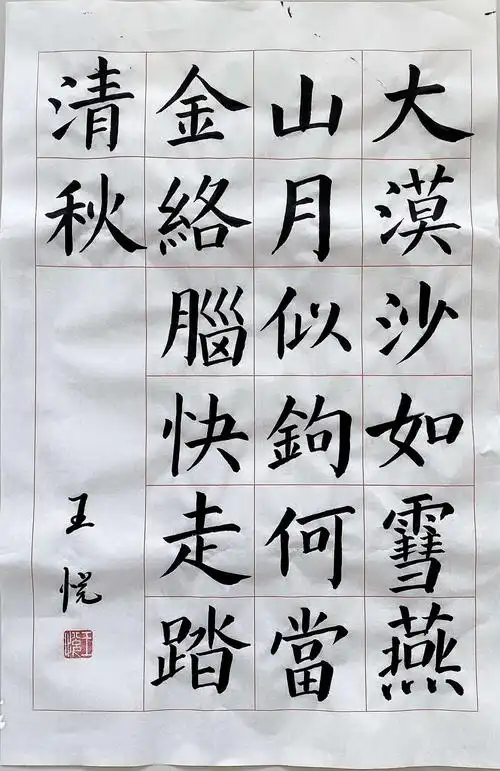 大漠沙如䨮燕
山月似鉤何當
金絡腦快走踏
清秋
王悦
王悦